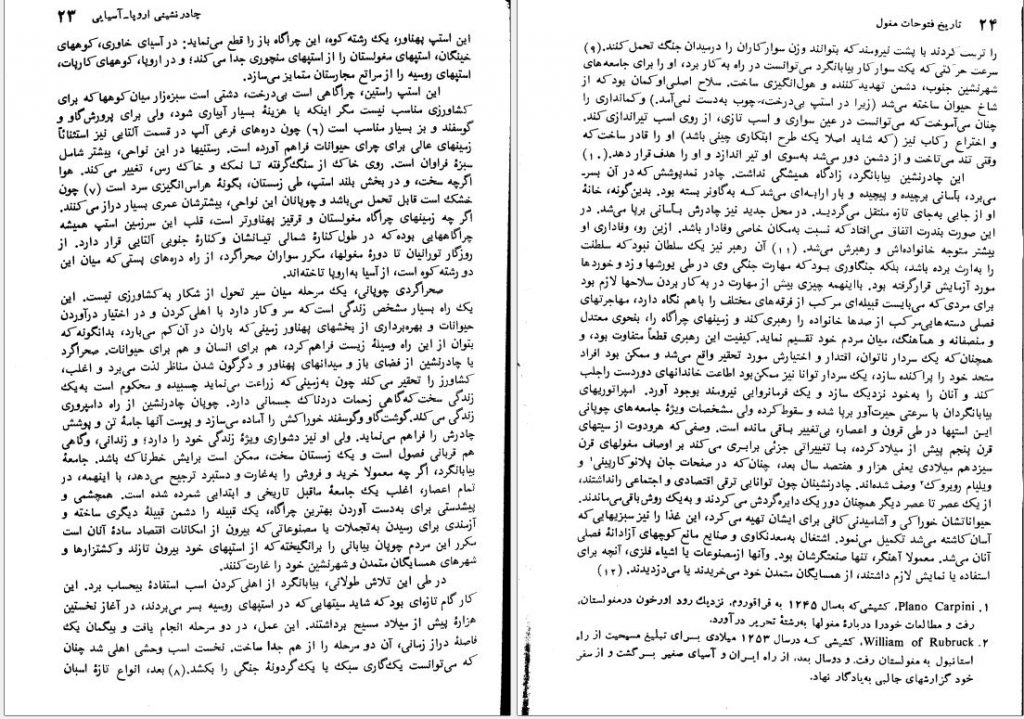 چادرنشینی اروپا-آسیایی ۲۳
این استپ پهناور، یک رشته کوه، این چراگاه باز را قطع می‌نماید: در آسیای خاوری، کوههای
خینگان، استپهای مغولستان را از استپهای منچوری جدا می‌کند؛ و در اروپا، کوههای کارپات،
استپهای روسیه را از مراتع مجارستان متمایز می‌سازد.
این استپ راستین، چراگاهی است بی‌درخت، دشتی است سبزه‌زار میان کوهها که برای
کشاورزی مناسب نیست مگر اینکه با هزینهٔ بسیار آبیاری شود، ولی برای پرورش گاو و
گوسفند و بز بسیار مناسب است (۶) چون دره‌های فرعی آلپ در قسمت آلتایی نیز استثنائاً
زمینهای عالی برای چرای حیوانات فراهم آورده است. رستنیها در این نواحی، بیشتر شامل
سبزهٔ فراوان است. روی خاک از سنگ گرفته تا نمک و خاک رس، تغییر می‌کند. هوا
اگرچه سخت، و در بخش بلند استپ، طی زمستان، بگونهٔ هراس‌انگیزی سرد است (۷) چون
خشک است قابل تحمل می‌باشد و چوپانان این نواحی، بیشترشان عمری بسیار دراز می‌کنند.
اگر چه زمینهای چراگاه مغولستان و قرقیز پهناورتر است، قلب این سرزمین استپ همیشه
چراگاههایی بوده که در طول کنارهٔ شمالی تیانشان و کنارهٔ جنوبی آلتایی قرار دارد. از
روزگار تورانیان تا دورهٔ مغولها، مکرر سواران صحراگرد، از راه دره‌های پستی که میان این
دو رشته کوه است، از آسیا به اروپا تاخته‌اند.
صحراگردی چوپانی، یک مرحله میان سیر تحول از شکار به کشاورزی نیست. این
یک راه بسیار مشخص زندگی است که سر و کار دارد با اهلی کردن و در اختیار درآوردن
حیوانات و بهره‌برداری از بخشهای پهناور زمینی که باران در آن کم می‌بارد، بدانگونه که
بتوان از این راه وسیلهٔ زیست فراهم کرد، هم برای انسان و هم برای حیوانات. صحراگرد
یا چادرنشین از فضای باز و میدانهای پهناور و دگرگون شدن مناظر لذت می‌برد و اغلب،
کشاورز را تحقیر می‌کند چون به زمینی که زراعت می‌نماید چسبیده و محکوم است به یک
زندگی سخت که گاهی زحمات دردناک جسمانی دارد. چوپان چادرنشین از راه دامپروری
زندگی می‌کند. گوشت گاو و گوسفند خوراکش را آماده می‌سازد و پوست آنها جامهٔ تن و پوشش
چادرش را فراهم می‌نماید. ولی او نیز دشواری ویژهٔ زندگی خود را دارد؛ و زندانی، و گاهی
هم قربانی فصول است و یک زمستان سخت، ممکن است برایش خطرناک باشد. جامعهٔ
بیابانگرد، اگر چه معمولا خرید و فروش را به غارت و دستبرد ترجیح می‌دهد، با اینهمه، در
تمام اعصار، اغلب یک جامعهٔ ماقبل تاریخی و ابتدایی شمرده شده است. همچشمی و
پیشدستی برای به‌دست آوردن بهترین چراگاه، یک قبیله را دشمن قبیلهٔ دیگری ساخته و
آزمندی برای رسیدن به تجملات یا مصنوعاتی که بیرون از امکانات اقتصاد سادهٔ آنان است
مکرر این مردم چوپان بیابانی را برانگیخته که از استپهای خود بیرون تازند و کشتزارها و
شهرهای همسایگان متمدن و شهرنشین خود را غارت کنند.
در طی این تلاش طولانی، بیابانگرد از اهلی کردن اسب استفادهٔ بیحساب برد. این
کار گام تازه‌ای بود که شاید سیتهایی که در استپهای روسیه بسر می‌بردند، در آغاز نخستین
هزارهٔ پیش از میلاد مسیح برداشتند. این عمل، در دو مرحله انجام یافت و بیگمان یک
فاصلهٔ دراز زمانی، آن دو مرحله را از هم جدا ساخت. نخست اسب وحشی اهلی شد چنان
که می‌توانست یک گاری سبک یا یک گردونهٔ جنگی را بکشد. (۸) بعد، انواع تازهٔ اسبان
۲۴ تاریخ فتوحات مغول
را تربیت کردند با پشت نیرومند که بتوانند وزن سوارکاران را در میدان جنگ تحمل کنند. (۹)
سرعت حرکتی که یک سوار کار بیابانگرد می‌توانست در راه به کار برد، او را برای جامعه‌های
شهرنشین جنوب، دشمن تهدید کننده و هول‌انگیزی ساخت. سلاح اصلی او کمان بود که از
شاخ حیوان ساخته می‌شد (زیرا در استپ بی‌درخت، چوب به‌دست نمی‌آمد.) و کمانداری را
چنان می‌آموخت که می‌توانست در عین سواری و اسب تازی، از روی اسب تیراندازی کند.
و اختراع رکاب نیز (که شاید اصلا یک طرح ابتکاری چینی باشد) او را قادر ساخت که
وقتی تند می‌تاخت و از دشمن دور می‌شد به‌سوی او تیر اندازد و او را هدف قرار دهد. (۱۰)
این چادرنشین بیابانگرد، زادگاه همیشگی نداشت. چادر نمدپوشش که در آن بسر-
می‌برد، بآسانی برچیده و پیچیده و بار ارابه‌ای می‌شد که به گاو نر بسته بود. بدین‌گونه، خانهٔ
او از جایی به‌جای تازه منتقل می‌گردید. در محل جدید نیز چادرش بآسانی برپا می‌شد. در
این صورت بندرت اتفاق می‌افتاد که نسبت به مکان خاصی وفادار باشد. ازین رو، وفاداری او
بیشتر متوجه خانواده‌اش و رهبرش می‌شد. (۱۱) آن رهبر نیز یک سلطان نبود که سلطنت
را به‌ارث برده باشد، بلکه جنگاوری بود که مهارت جنگی وی در طی یورشها و زد و خوردها
مورد آزمایش قرار گرفته بود. با اینهمه چیزی بیش از مهارت در به کار بردن سلاحها لازم بود
برای مردی که می‌بایست قبیله‌ای مرکب از فرقه‌های مختلف را باهم نگاه دارد، مهاجرتهای
فصلی دسته‌هایی مرکب از صدها خانواده را رهبری کند و زمینهای چراگاه را، بنحوی معتدل
و منصفانه و هماهنگ، میان مردم خود تقسیم نماید. کیفیت این رهبری قطعاً متفاوت بود، و
همچنان که یک سردار ناتوان، اقتدار و اختیارش مورد تحقیر واقع می‌شد و ممکن بود افراد
متحد خود را پراکنده سازد، یک سردار توانا نیز ممکن بود اطاعت خاندانهای دوردست را جلب
کند و آنان را به‌خود نزدیک سازد و یک فرمانروایی نیرومند بوجود آورد. امپراتوریهای
بیابانگردان با سرعتی حیرت‌آور برپا شده و سقوط کرده ولی مشخصات ویژهٔ جامعه‌های چوپانی
این استپها در طی قرون و اعصار، بی‌تغییر باقی مانده است. وصفی که هرودوت از سیتهای
قرن پنجم پیش از میلاد کرده، با تغییراتی جزئی برابری می‌کند بر اوصاف مغولهای قرن
سیزدهم میلادی یعنی هزار و هفتصد سال بعد، چنان که در صفحات جان پلانو کارپینی۱ و
ویلیام روبروک۲ وصف شده‌اند. چادرنشینان چون توانایی ترقی اقتصادی و اجتماعی را نداشتند،
از یک عصر تا عصر دیگر همچنان دور یک دایره گردش می‌کردند و به‌یک روش باقی می‌ماندند.
حیواناتشان خوراکی و آشامیدنی کافی برای ایشان تهیه می‌کرد، این غذا را نیز سبزیهایی که
آسان کاشته می‌شد تکمیل می‌نمود. اشتغال به معدنکاوی و صنایع مانع کوچهای آزادانهٔ فصلی
آنان می‌شد. معمولا آهنگر، تنها صنعتگرشان بود. و آنها از مصنوعات یا اشیاء فلزی، آنچه برای
استفاده یا نمایش لازم داشتند، از همسایگان متمدن خود می‌خریدند یا می‌دزدیدند. (۱۲)
۱. Plano Carpini، کشیشی که به‌سال ۱۲۴۵ به قراقوروم، نزدیک رود اورخون در مغولستان،
رفت و مطالعات خود را دربارهٔ مغولها به‌رشتهٔ تحریر درآورد.
۲. William of Rubruck، کشیشی که در سال ۱۲۵۳ میلادی برای تبلیغ مسیحیت از راه
استانبول به مغولستان رفت. و دو سال بعد، از راه ایران و آسیای صغیر برگشت و از سفر
خود گزارشهای جالبی به‌یادگار نهاد.